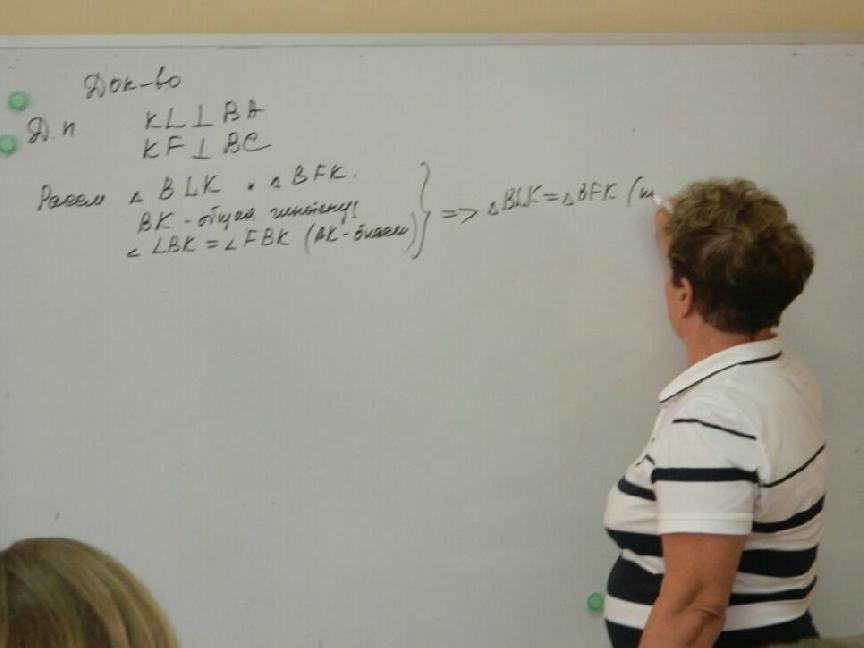 Док-во
Д.п. KL ⊥ BA
KF ⊥ BC
Рассм △ BLK и △ BFK.
BK - общая гипотенуз
∠ LBK = ∠ FBK (BK - биссм) } => △BLK = △BFK (